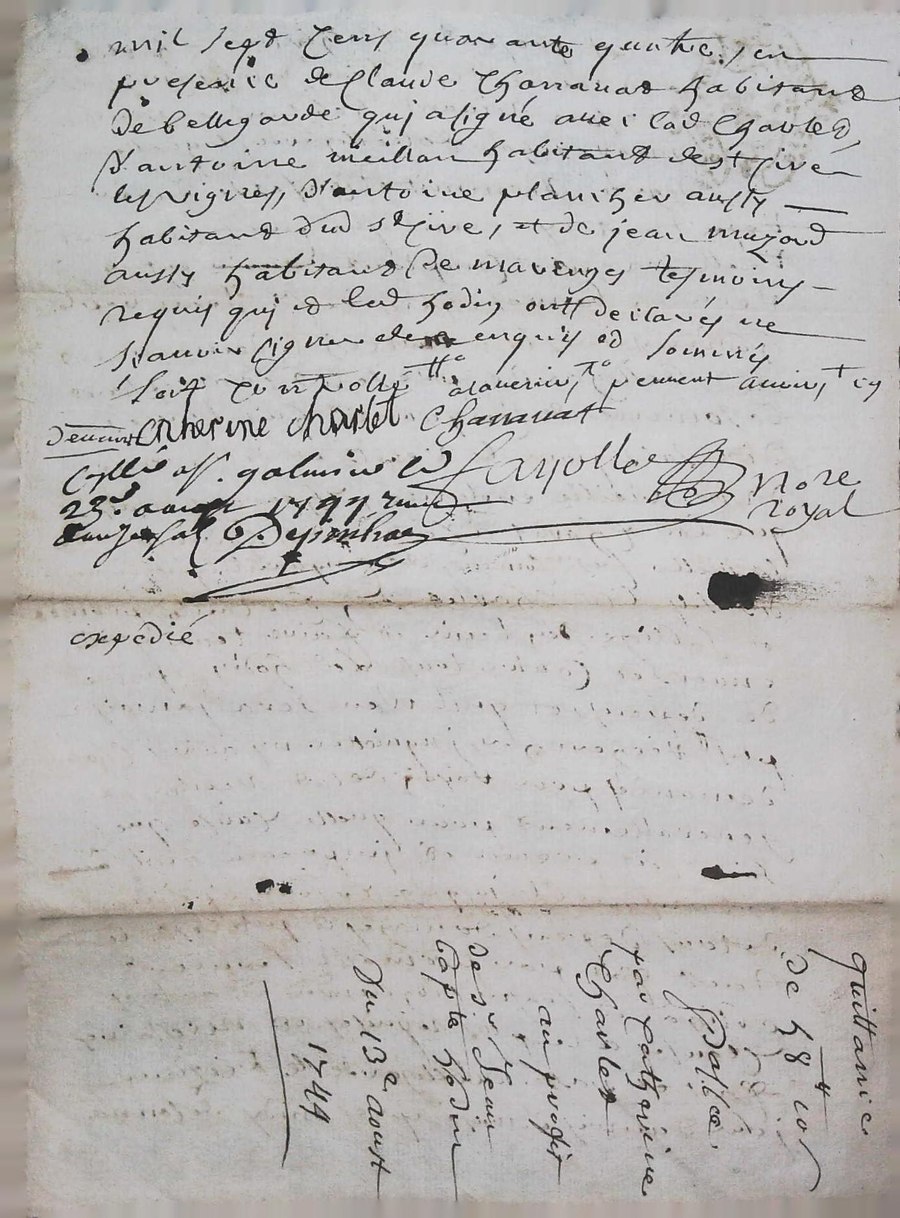 mil sept cens quarante quatre, en
presence de Claude Charranat habitant
de bellegarde qui a signé avec lad Charlet,
d'antoine meillan habitant de st Ciré
les vignes, d'antoine plancher aussy
habitant dud st Cire, et de jean muzard
aussy habitant de maringes tesmoins
requis qui et led hodin ont declarés ne
sçavoir signer de enquis et sommés
soit controllé
Catherine charlet Charanat
galmier le
23e aoust 1744
Fayolle Nore
royal
expedié
quittance
de 48 10s
passée
par Catherine
Charlet
au profit
de sr Jean
bapte hodin
Du 13e aoust
1744